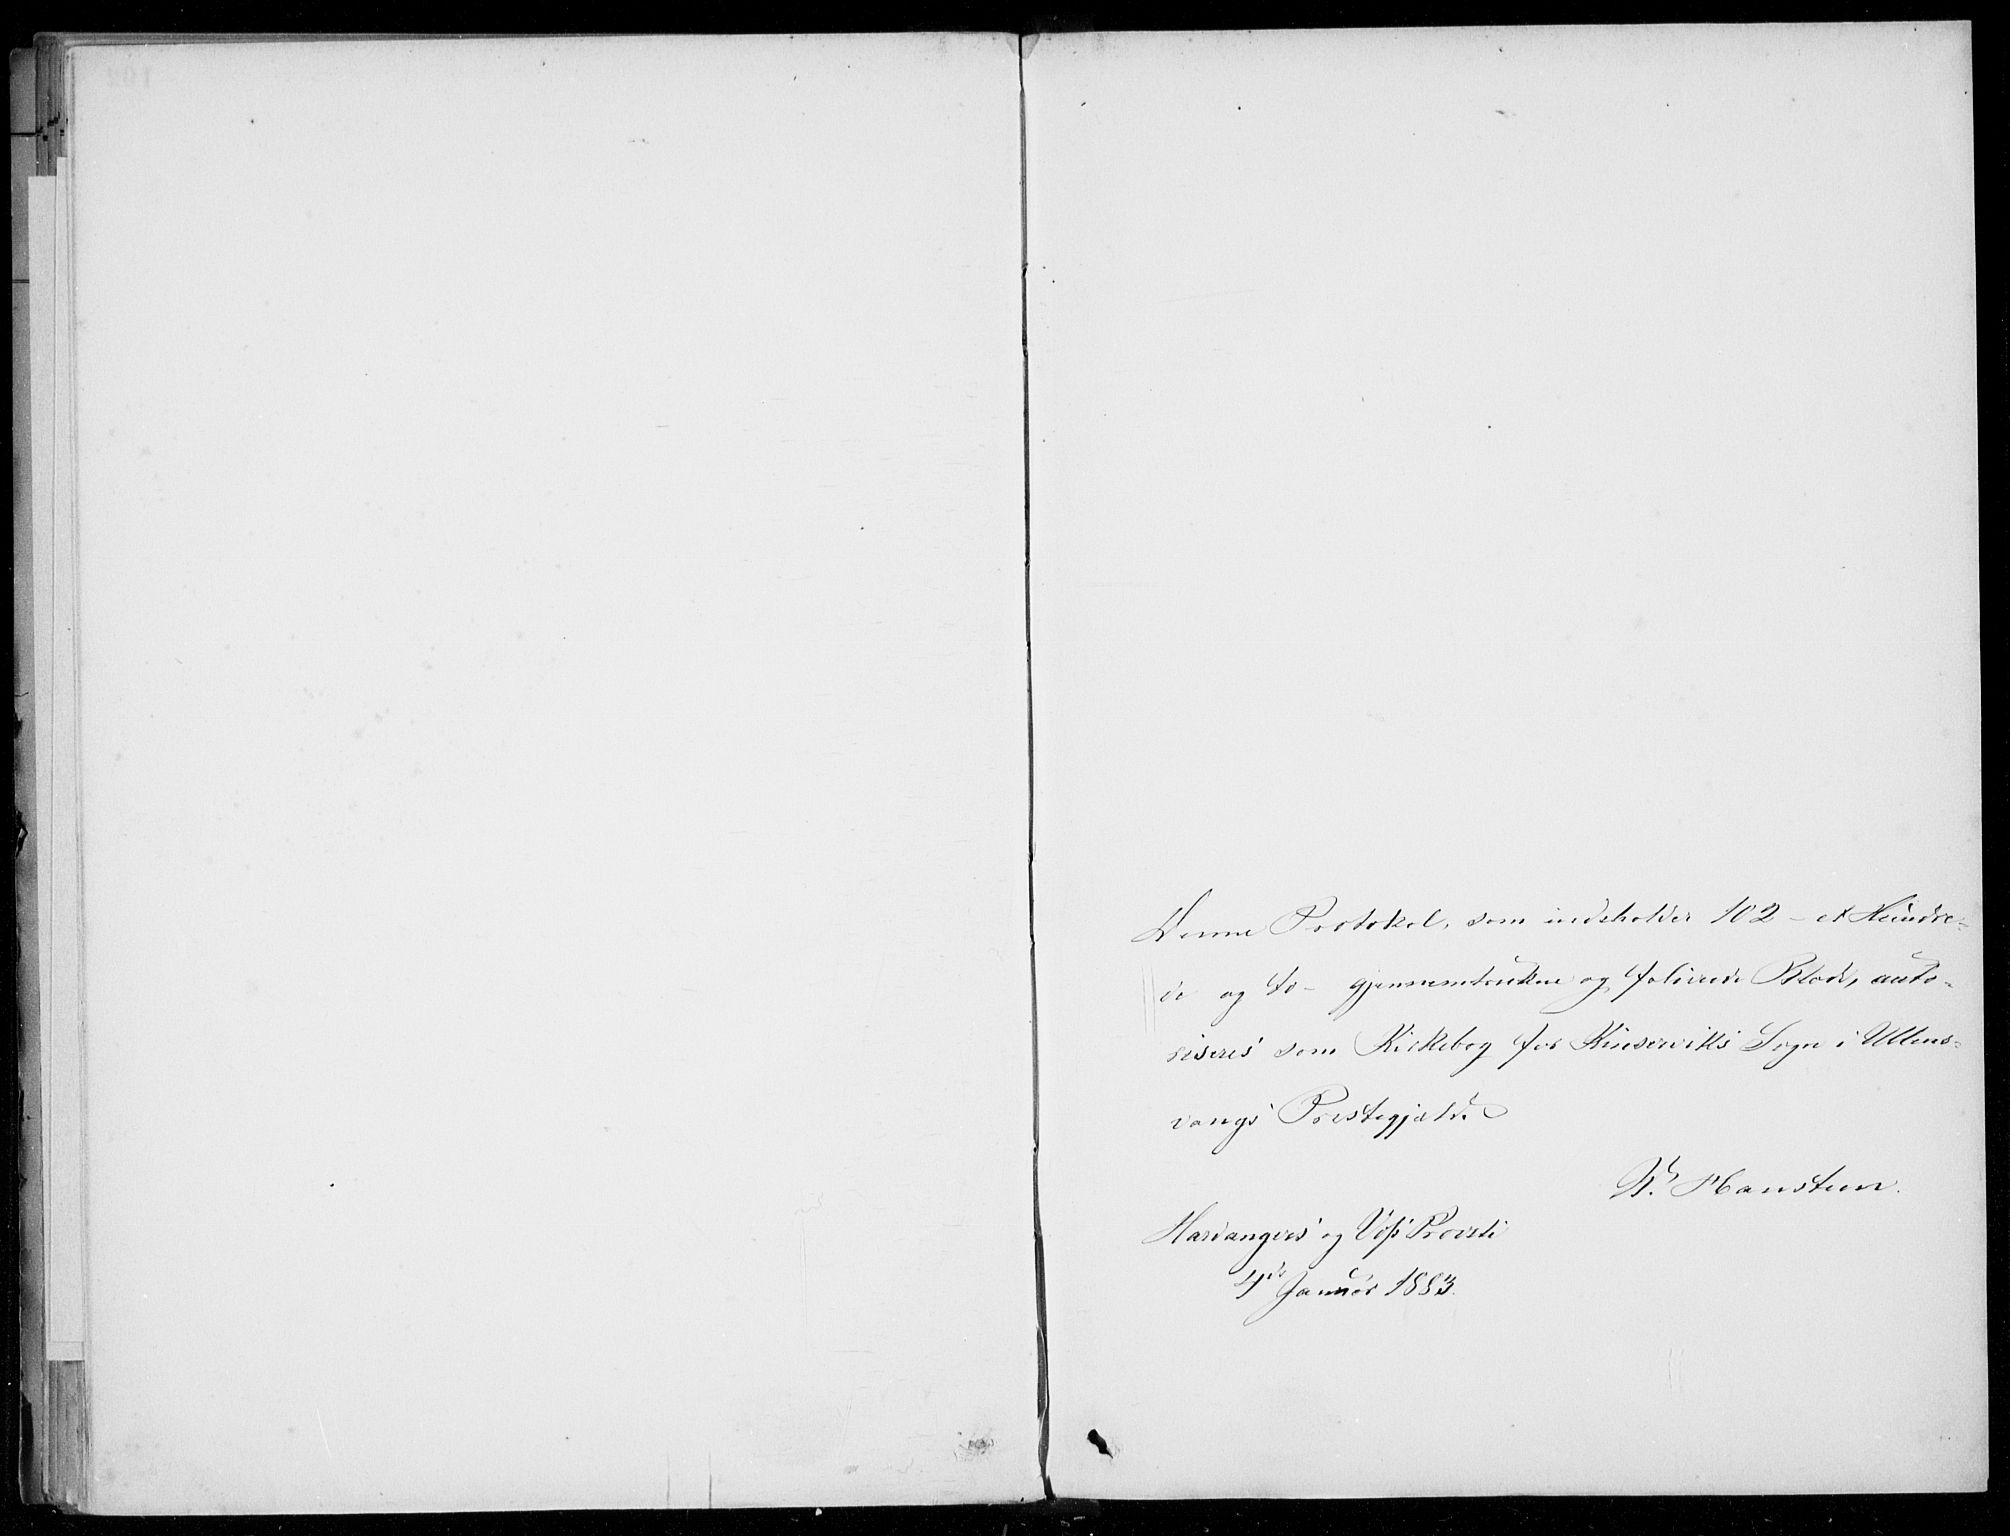 Denne Protokol, som indeholder 102 - et Hundre-
de og to - gjennemtrukne og folierede Blade, auto-
riseres som Kirkebog for Kinserviks Sogn i Ullens-
vangs Prestegjæld.
W. Hansteen.
Hardangers og Voss Provsti
4de Januar 1883.